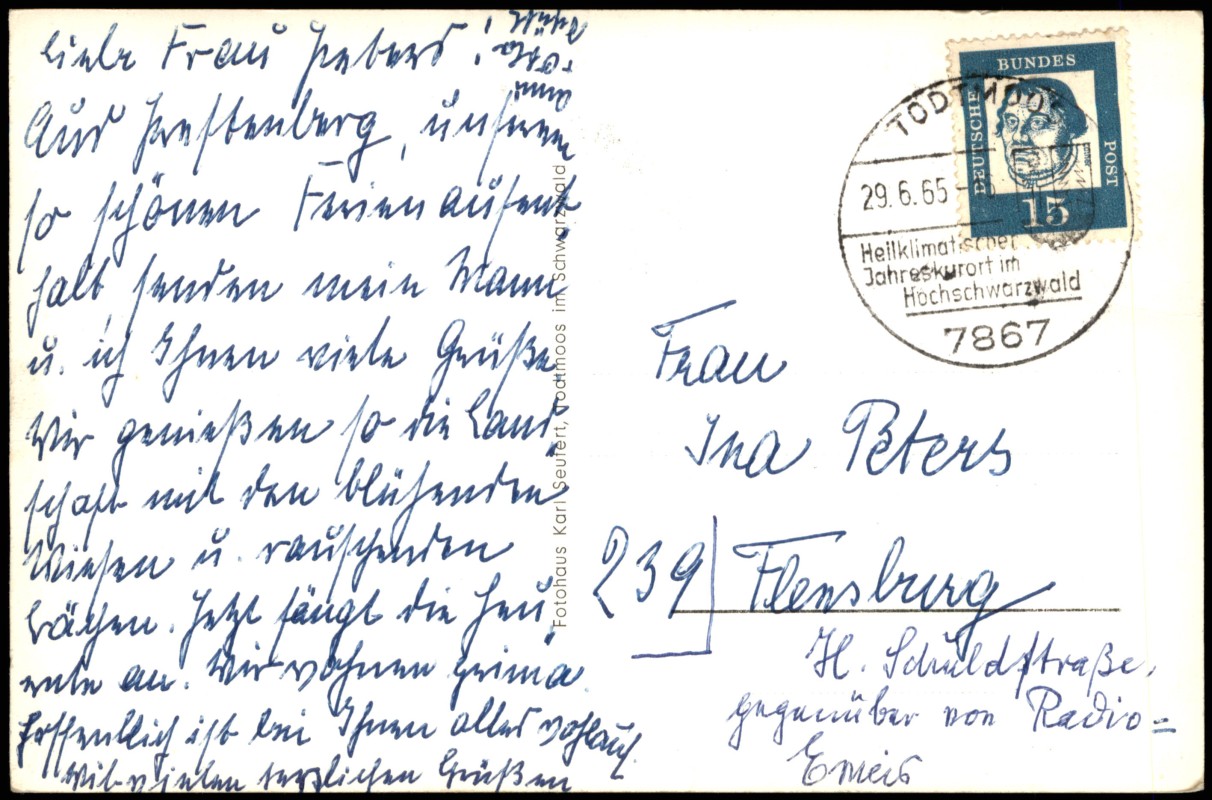 Liebe Frau Peters!
Aus Prestenberg, unseren
so schönen Ferienaufent-
halt, senden mein Mann
u. ich Ihnen viele Grüße
Wir genießen so die Land-
schaft mit den blühenden
Wiesen u. rauschenden
Bächen. Jetzt fängt die Heu-
ernte an. Wir wohnen prima
Hoffentlich ist bei Ihnen alles wohlauf.
Mit vielen herzlichen Grüßen
Fotohaus Karl Seufert, Todtmoos im Schwarzwald
DEUTSCHE BUNDESPOST
15
TODTMOOS
29.6.65
Heilklimatischer
Jahreskurort im
Hochschwarzwald
7867
Frau
Ina Peters
239 Flensburg
H. Schuldtstraße,
gegenüber von Radio=
Emeis